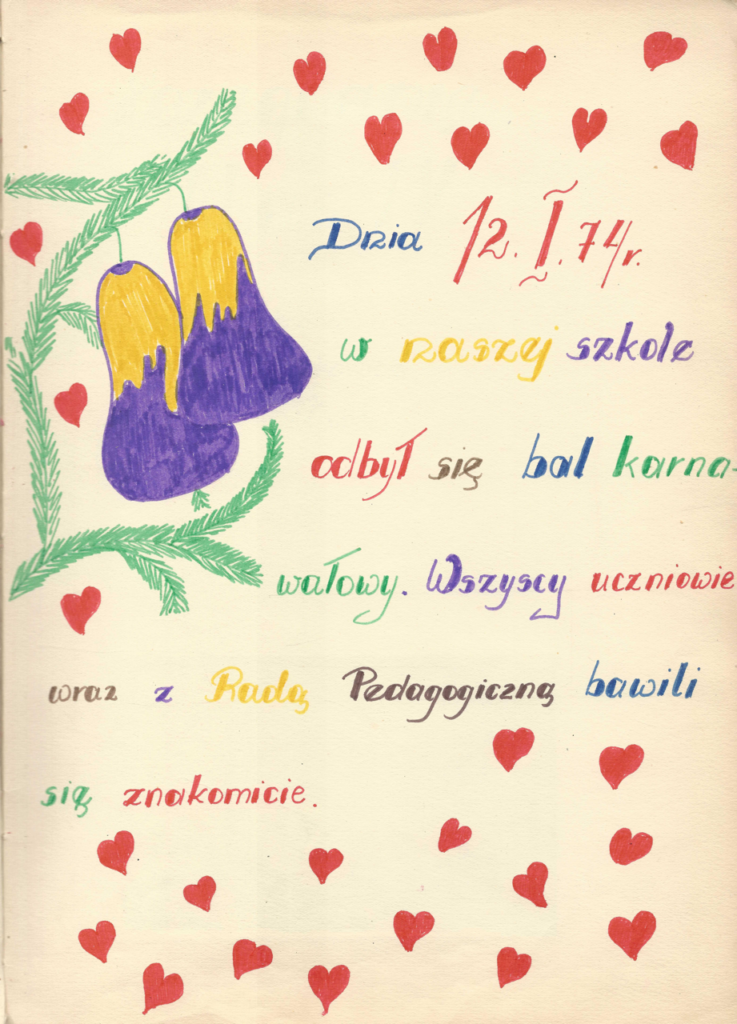 Dnia 12.I.74r.
w naszej szkole
odbył się bal karna-
wałowy. Wszyscy uczniowie
wraz z Radą Pedagogiczną bawili
się znakomicie.